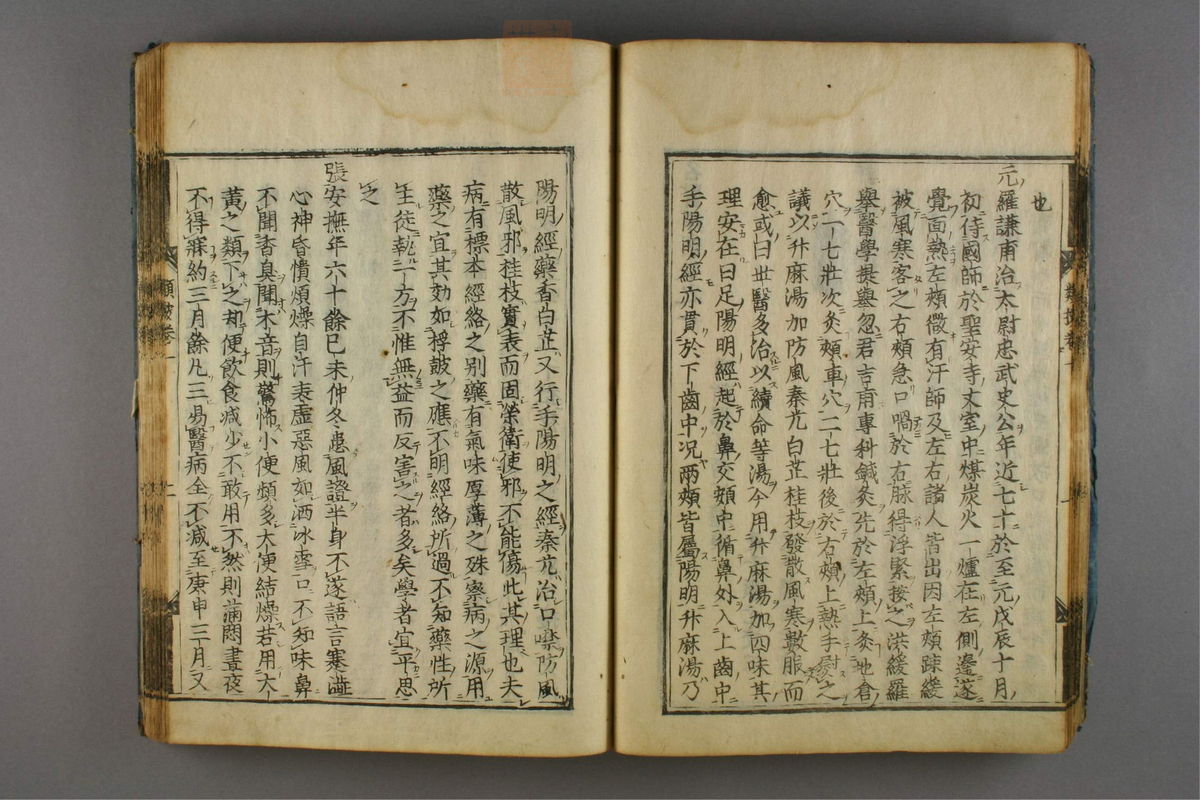 也
元羅謙甫治太尉忠武史公年近七十於至元戊辰十月
初侍國師於聖安寺丈室中煤炭火一爐在左側邊遂
覺面熱左頰微有汗師及左右諸人皆出因左頰踈緩
被風寒客之右頰急口喎於右脉得浮緊按之洪緩羅
舉醫學提舉忽君吉甫專科鍼灸先於左頰上灸地倉
穴一七壯次灸頰車穴二七壯後於右頰上熱手熨之
議以升麻湯加防風秦艽白芷桂枝發散風寒數服而
愈或曰世醫多治以續命等湯今用升麻湯加四味其
理安在曰足陽明經起於鼻交頞中循鼻外入上齒中
手陽明經亦貫於下齒中况兩頰皆屬陽明升麻湯乃
陽明經藥香白芷又行手陽明之經秦艽治口噤防風
散風邪桂枝實表而固榮衛使邪不能傷此其理也夫
病有標本經絡之别藥有氣味厚薄之殊察病之源用
藥之宜其効如桴皷之應不明經絡所過不知藥性所
主徒執一方不惟無益而反害之者多矣學者宜平思
之
張安撫年六十餘己未仲冬患風證半身不遂語言蹇澁
心神昏憒煩燥自汗表虛惡風如洒冰雪口不知味鼻
不聞香臭聞木音則驚怖小便頻多大便結燥若用大
黃之類下之却便飮食减少不敢用不然則滿悶晝夜
不得寐約三月餘凡三易醫病全不减至庚申三月又